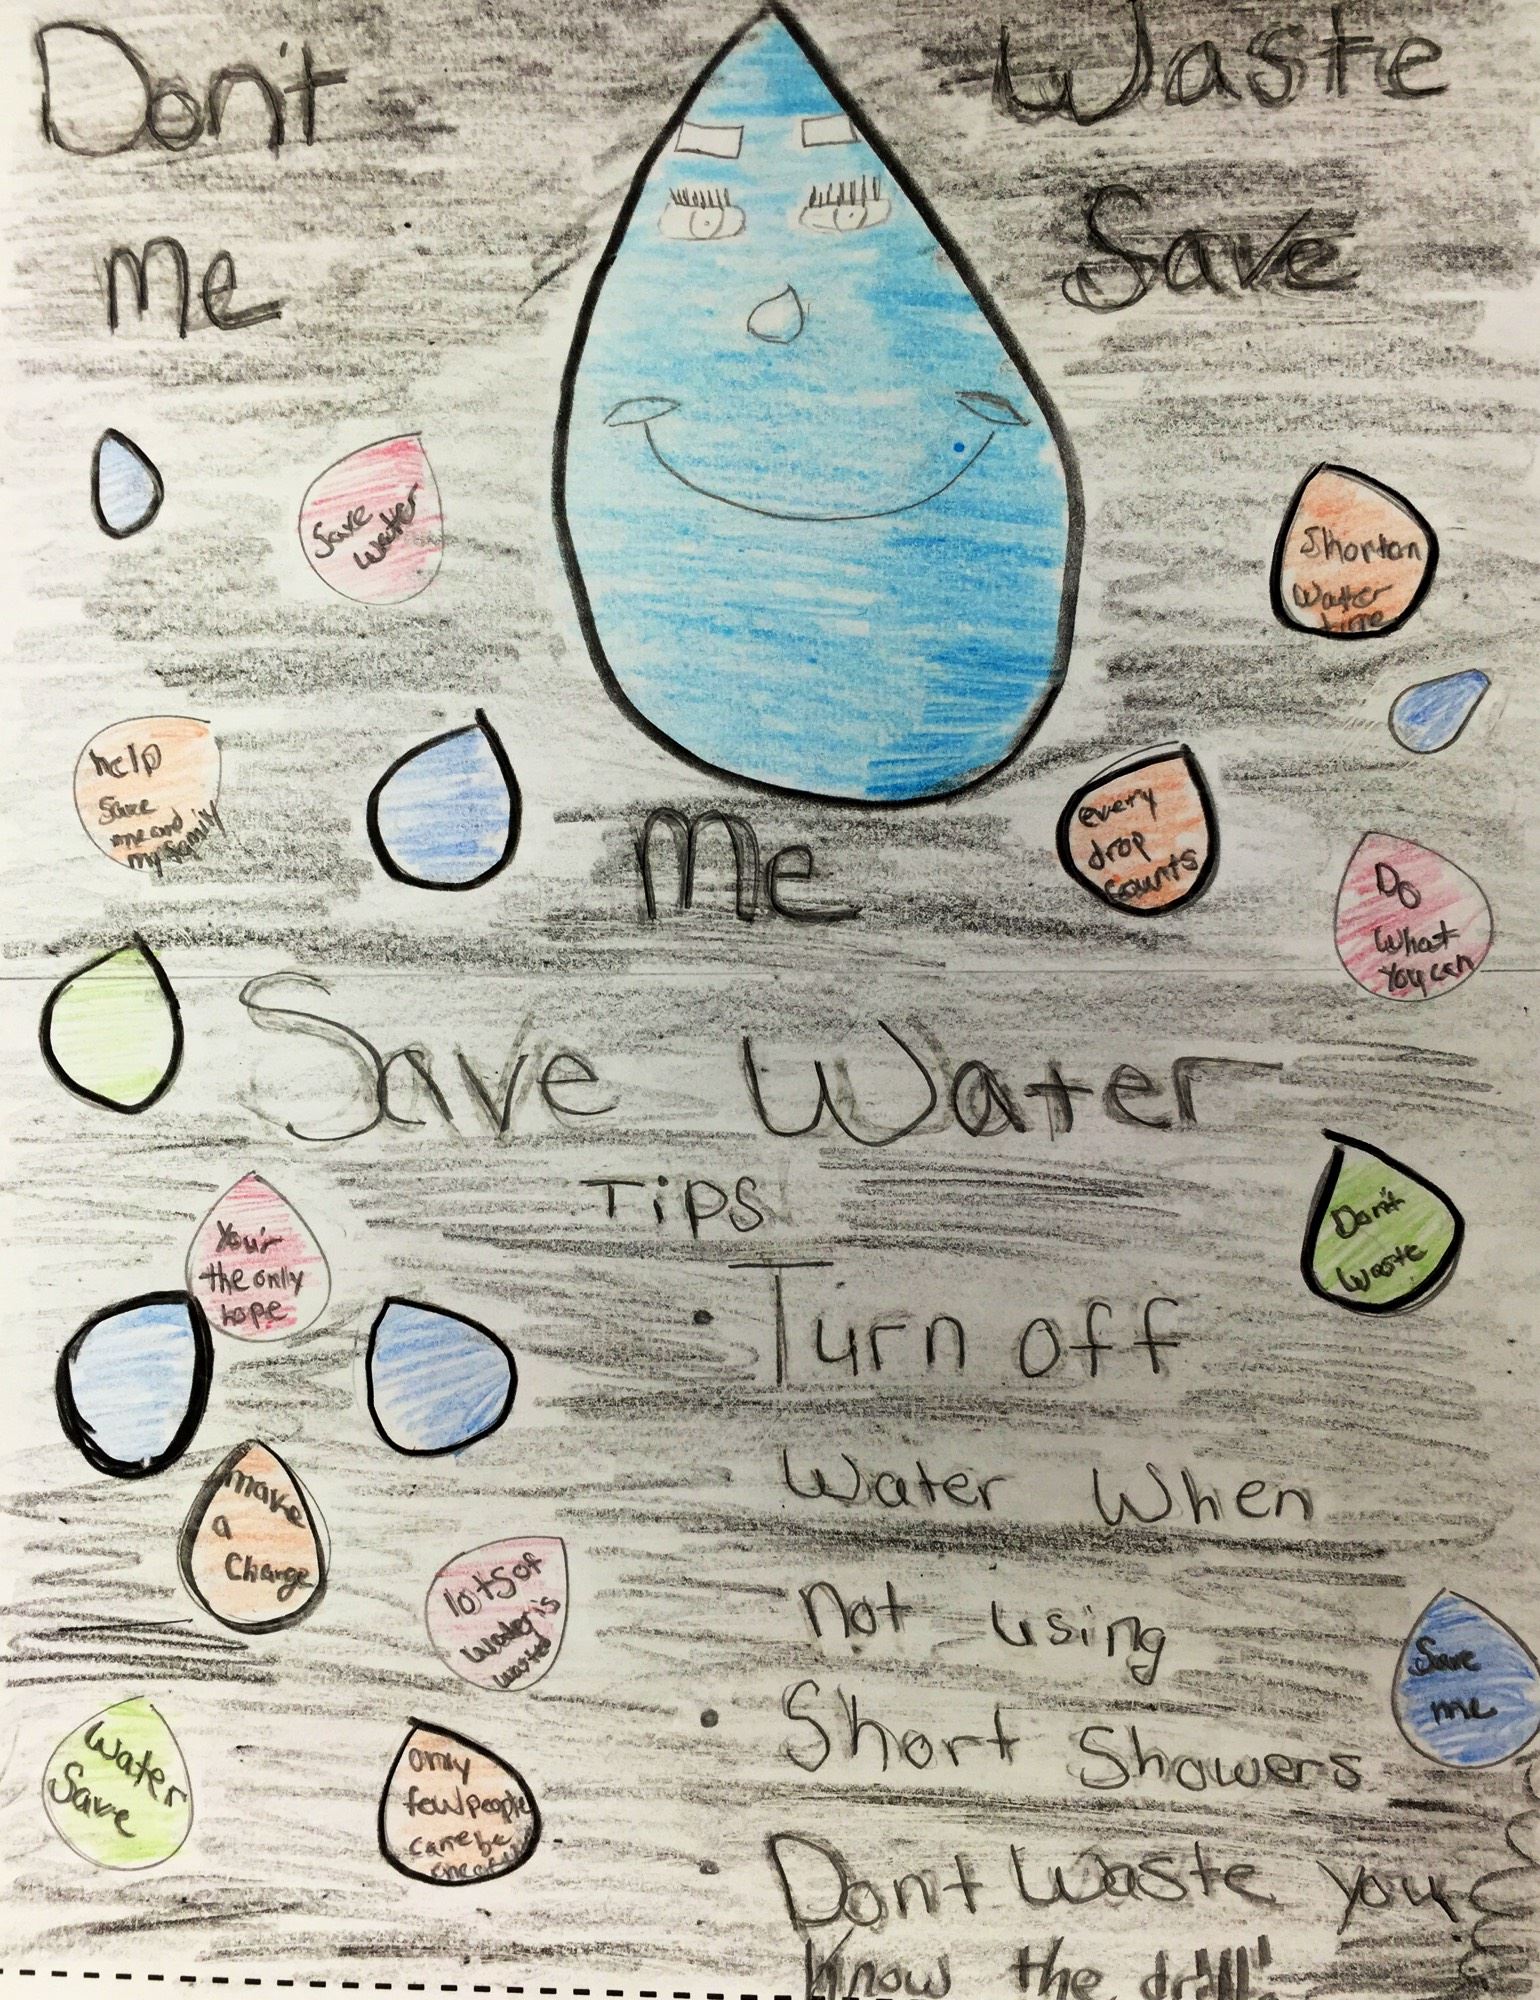 Don't Waste
Me Save
Me
Save
Water
Shorton
Water
time
help
Save
me and
my family
every
drop
counts
Do
What
You can
Save Water
Tips
Don't
Waste
You'r
the only
hope
• Turn off
Water When
not using
make
a
Change
lots of
Water is
waste
Save
me
• Short Showers
Water
Save
only
few people
can be
• Dont Waste you
know the drill!